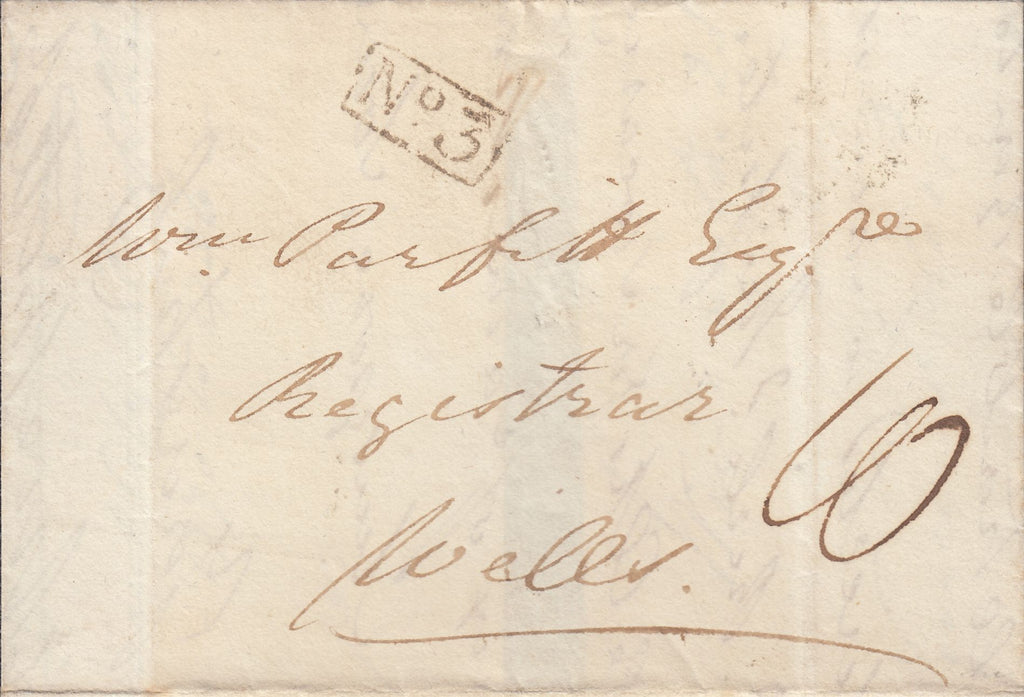 No. 3
Wm. Parfitt Esqre
Registrar
Wells.